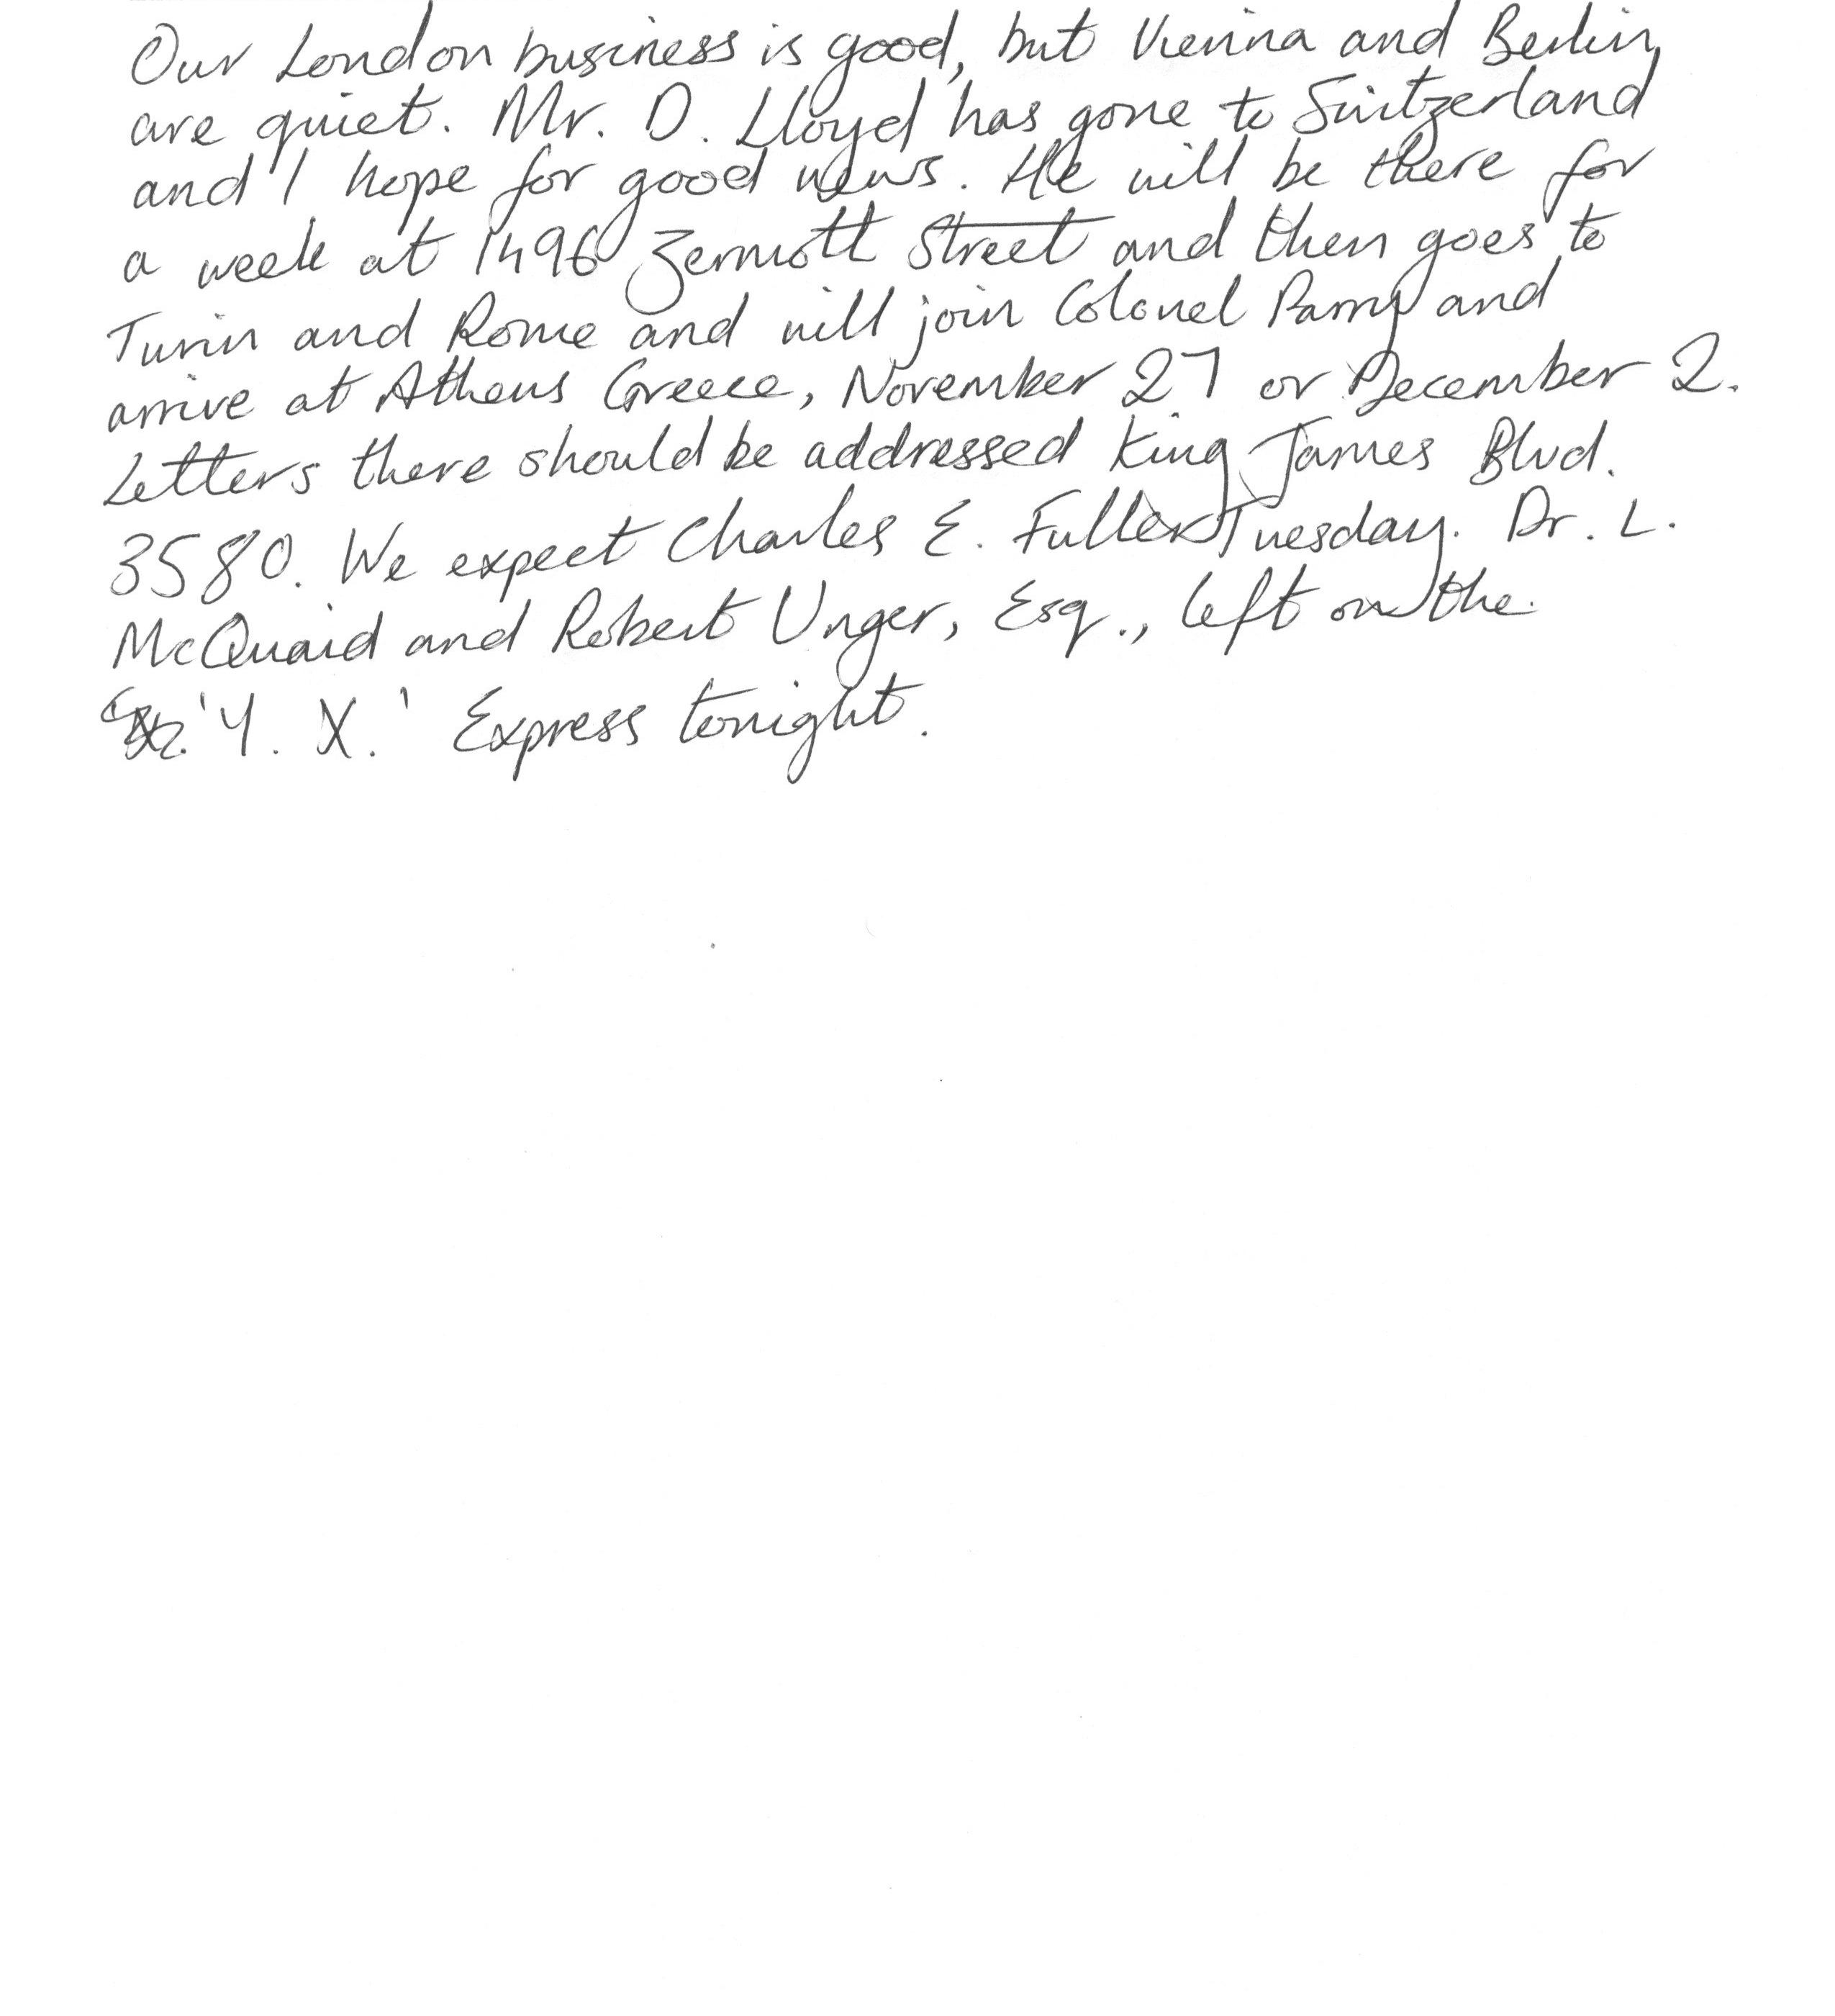 Our London business is good, but Vienna and Berlin
are quiet. Mr. D. Lloyd has gone to Switzerland
and I hope for good news. He will be there for
a week at 1496 Zermott Street and then goes to
Turin and Rome and will join Colonel Parry and
arrive at Athens Greece, November 27 or December 2.
Letters there should be addressed King James Blvd.
3580. We expect Charles E. Fuller Tuesday. Dr. L.
McQuaid and Robert Unger, Esq., left on the
'Y. X.' Express tonight.